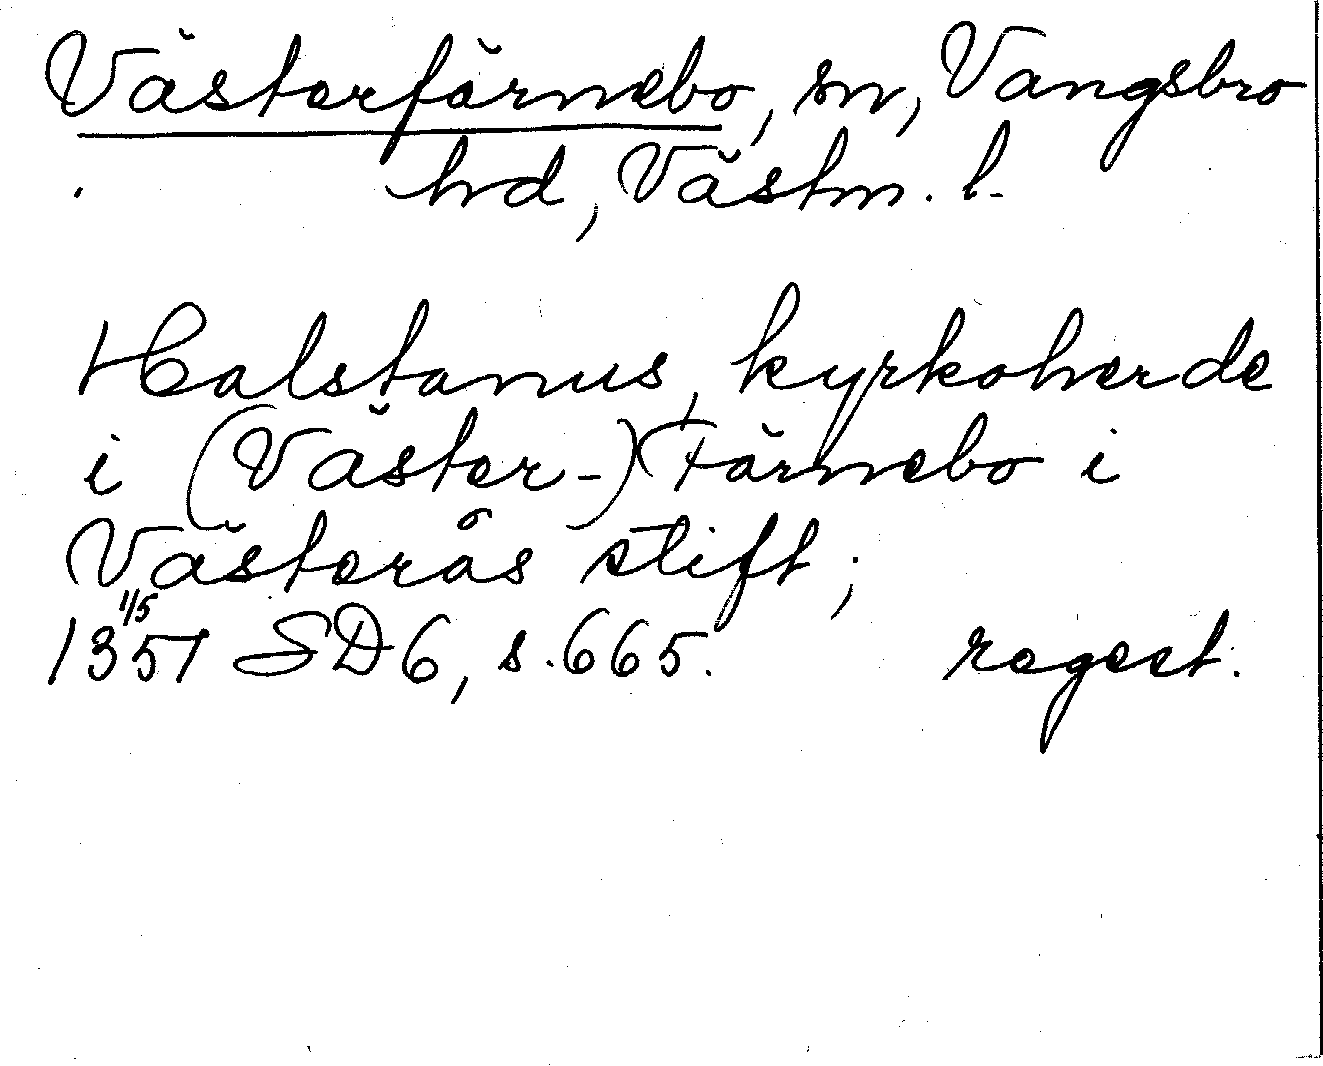 Västerfärnebo, sn, Vangsbro
hd, Västm. l.
Halstanus, kyrkoherde
i (Väster-) Färnebo i
Västerås stift;
1/5
1351 SD 6, s. 665. regest.